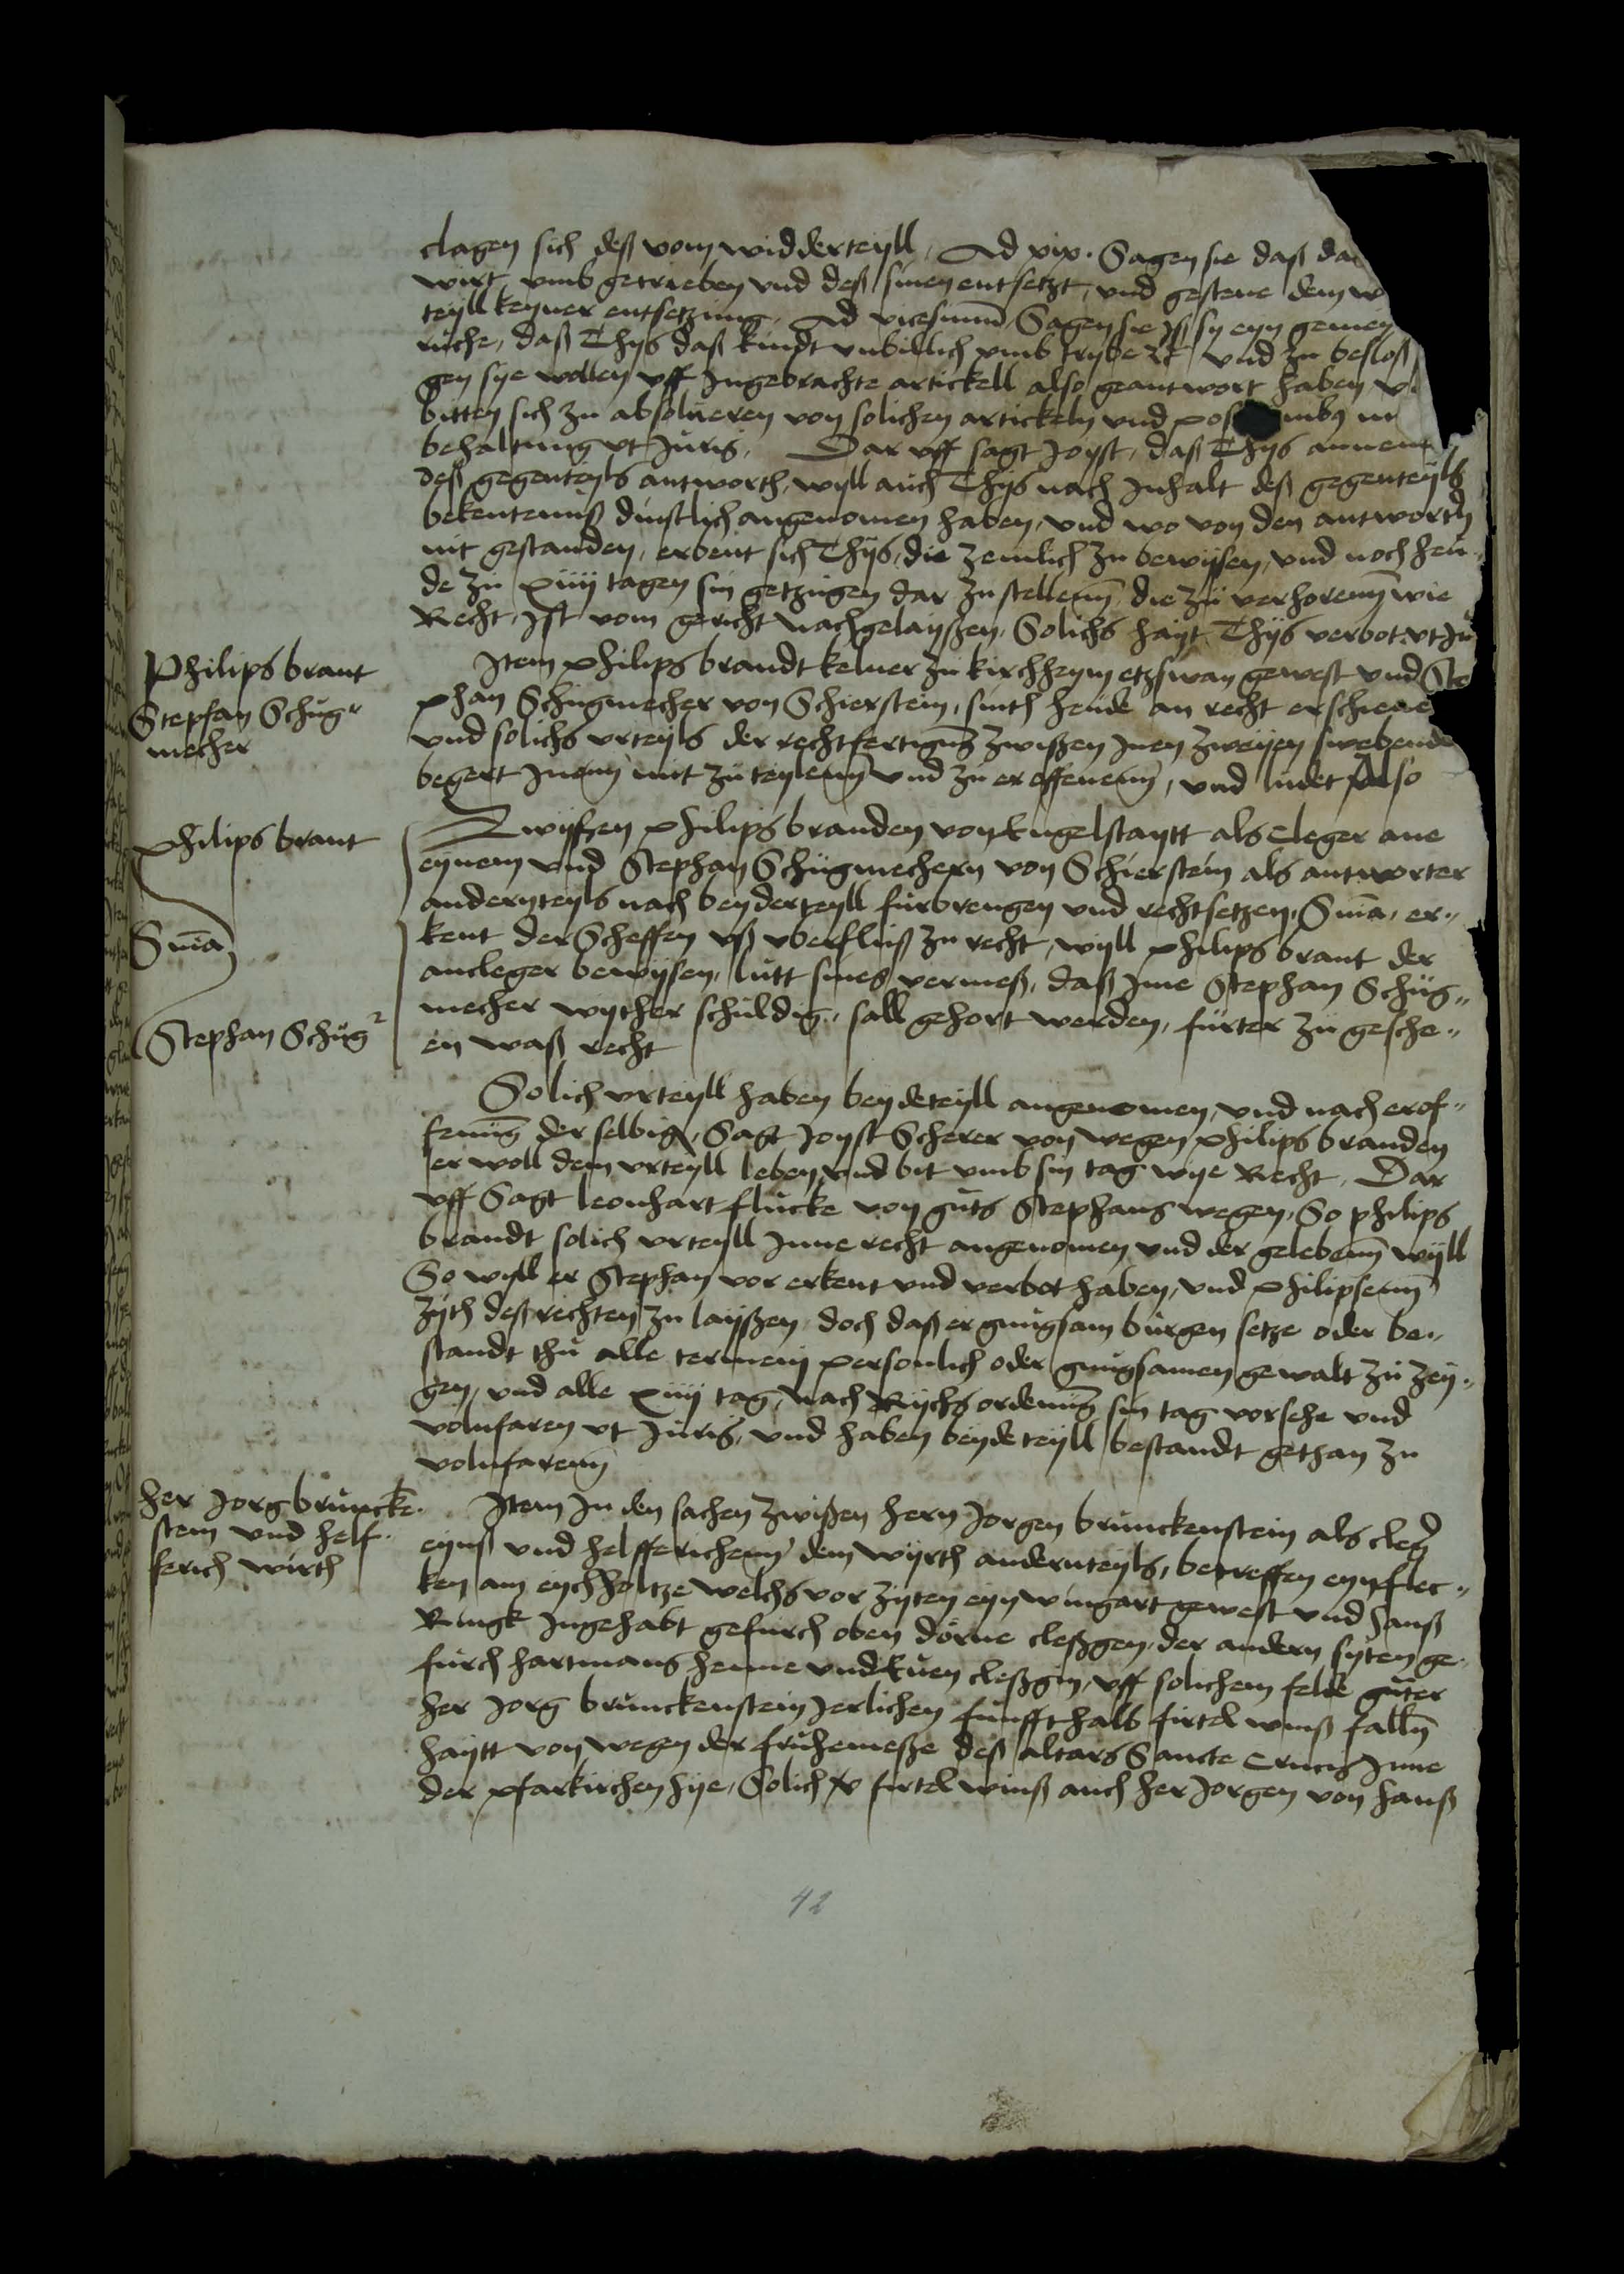 clagen sich deß vom widderteyll, Ad xix. Sagen sie daß da
wirt vmb getrieben vnd deß sinen entsetzt, vnd gestene dem w
teyll keyner entsetzung, Ad vicesimum Sagen sie Jß sy eyn gemeyn
ruche, daß Thijs daß kindt vnbillich vmb trybe etc vnd zu besloß
gen sye wollen vff Jngebrachte artickell also geantwort haben v
bitten sich zu absolueren von solichen artickeln vnd pos
behaltung vt Juris. Dar vff sagt Joyst, daß Thijs annem
deß gegenteyls antworth, wyll auch Thijs nach Jnhalt deß gegenteyls
bekentenniß dinstlich angenomen haben, vnd wo von den antworth
nit gestanden, erbeut sich Thijs, die zemlich zu bewysen, vnd noch heu
de zu xiiij tagen sin getzugen dar zu stellenn die zu verhorenn wie
Recht, Jst vom gericht nachgelayßen, Solichs hayt Thijs verbot vt Ju
Philips brant
Stephan Schug"
mecher
Jtem Philips brandt kelner zu kirchheym etzswan gewest vnd Ste
phan Schugmecher von Schierstein, sinth heude an recht erschiene
vnd solichs vrteyls der rechtfertigung zwißen Jnen zweyen swebende
begert Jnenn mit zu teylenn vnd zu eroffenenn, vnd ludet Also
Philips brant
Sma
Stephan Schug
Zwyssen Philips branden von Engelstaytt als cleger ane
eynem vnd Stephan Schugmechern von Schierstein als antworter
andernteyls nach beyderteyll furbrengen vnd rechtsetzen, Sma, er"
kent der Scheffen vß vberfluß zu recht, wyll Philips brant der
ancleger bewysen, lutt sines vermeß, daß Jme Stephan Schug"
mecher wyther schuldig, sall gehort werden, furter zu gesche"
en waß recht
Solich vrteyll haben beydeteyll angenomen, vnd nach erof"
fenung der selbigen, Sagt Joyst Scherer von wegen Philips branden
er woll dem vrteyll leben vnd bit vmb sin tag wye Recht, Dar
vff Sagt leonhart flucke von guts Stephans wegen, So philips
brandt solich vrteyll Jnne recht angenomen vnd der gelebenn wyll
So wyll er Stephan vor erkent vnd verbot haben, vnd Philipsenn
zyth deß rechten zu layßen, doch daß er gnugsam burgen setze oder be"
standt thu alle termenij personlich oder gnugsamen gewalt zu zey"
gen, vnd alle xiiij tag, nach Rychs ordenung sin tag vorsehe vnd
volnfaren vt Juris, vnd haben beyde teyll bestandt gethan zu
volnfarenn
her Jorg bruncke
stein vnd helf
ferich wirth
Jtem Jn den sachen zwißen hern Jorgen brunckenstein als cleger
eynß vnd helfferichenn dem wyrth andernteyls, betreffen eyn flec"
ken am eychholtze welchs vor zyten eyn wingart gewest vnd Hanß
Ringk Jngehabt gefurch oben dorne cleßgen, der andern syten ge
furch hartmans henne vnd kuen cleßgin, vff solichem felde guter
her Jorg brunckenstein Jerlichen funffthalb firtel winß fallen
haytt von wegen der fruhemeße deß altars Sancte Crucis Jnne
der pfarkirchen hye, Solich v firtel winß auch her Jorgen von hanß
42